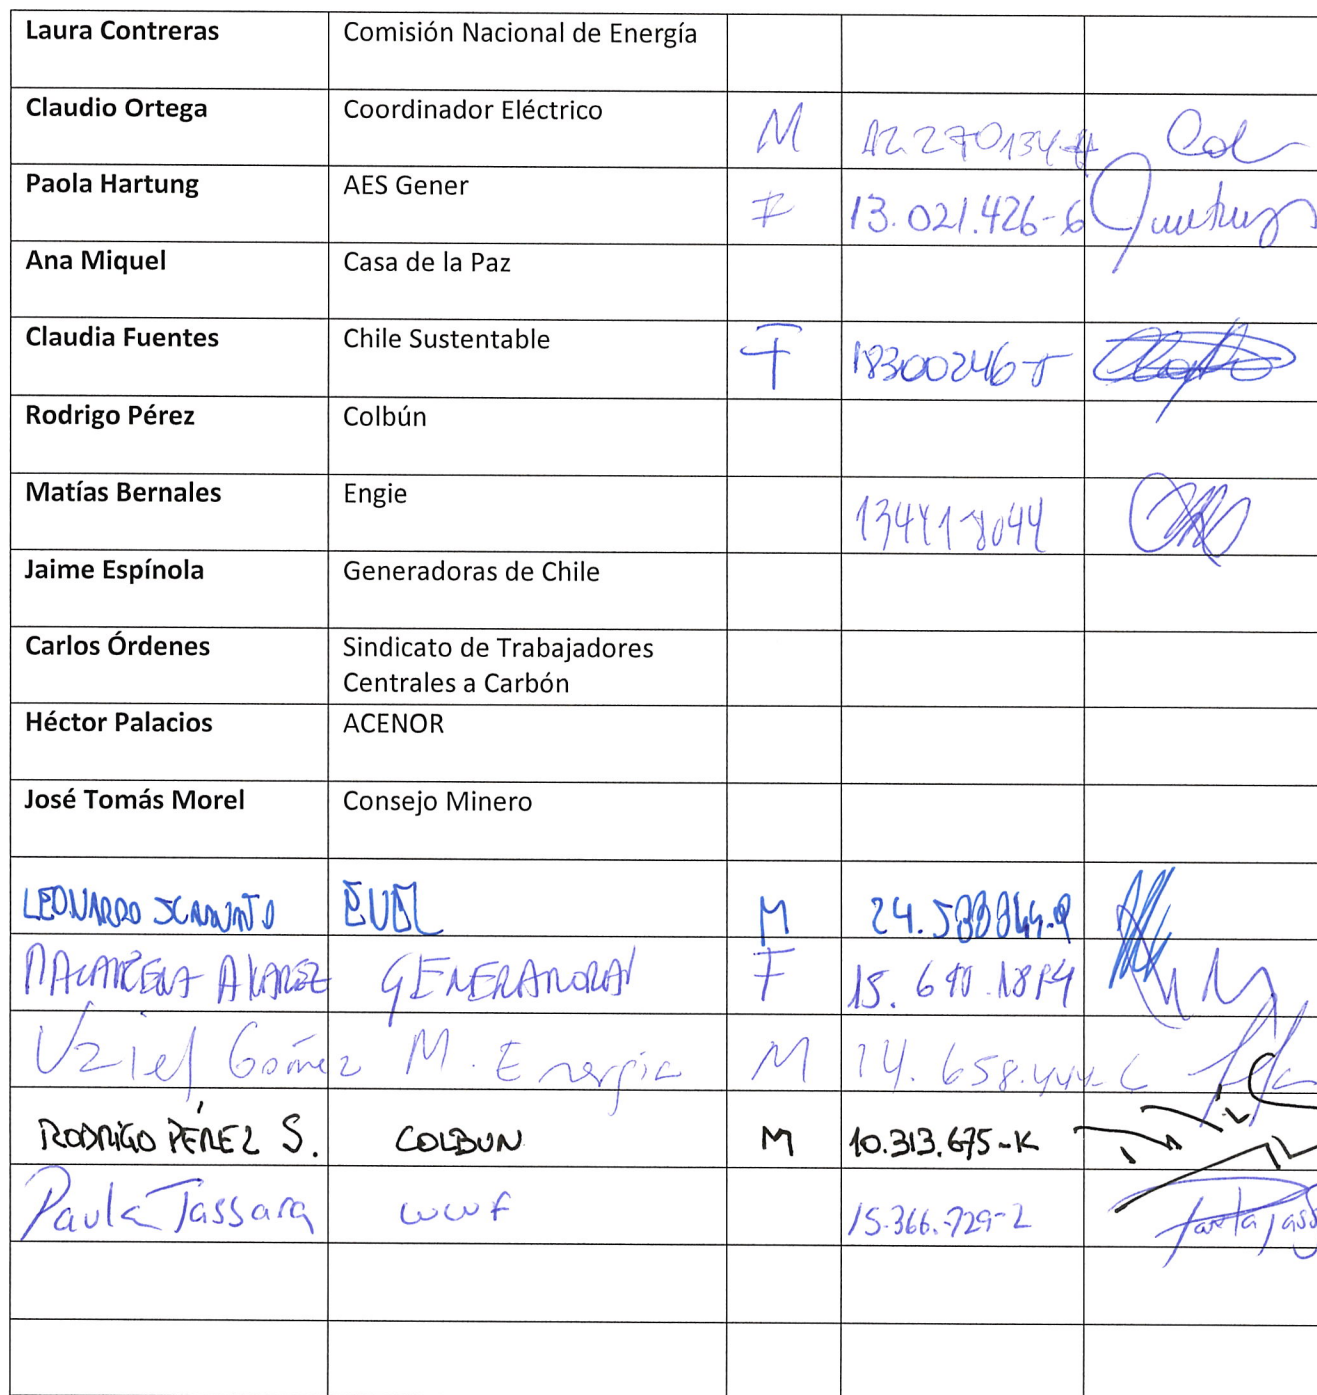 Laura Contreras Comisión Nacional de Energía
Claudio Ortega Coordinador Eléctrico M
Paola Hartung AES Gener F 13.021.426-6
Ana Miquel Casa de la Paz
Claudia Fuentes Chile Sustentable F
Rodrigo Pérez Colbún
Matías Bernales Engie
Jaime Espínola Generadoras de Chile
Carlos Órdenes Sindicato de Trabajadores
Centrales a Carbón
Héctor Palacios ACENOR
José Tomás Morel Consejo Minero
LEONARDO M
MACARENA ALVAREZ F
Uziel Gómez M. Energia M
RODRIGO PÉREZ S. COLBUN M 10.313.675-K
Paula Tassara wwf 15.366.729-2